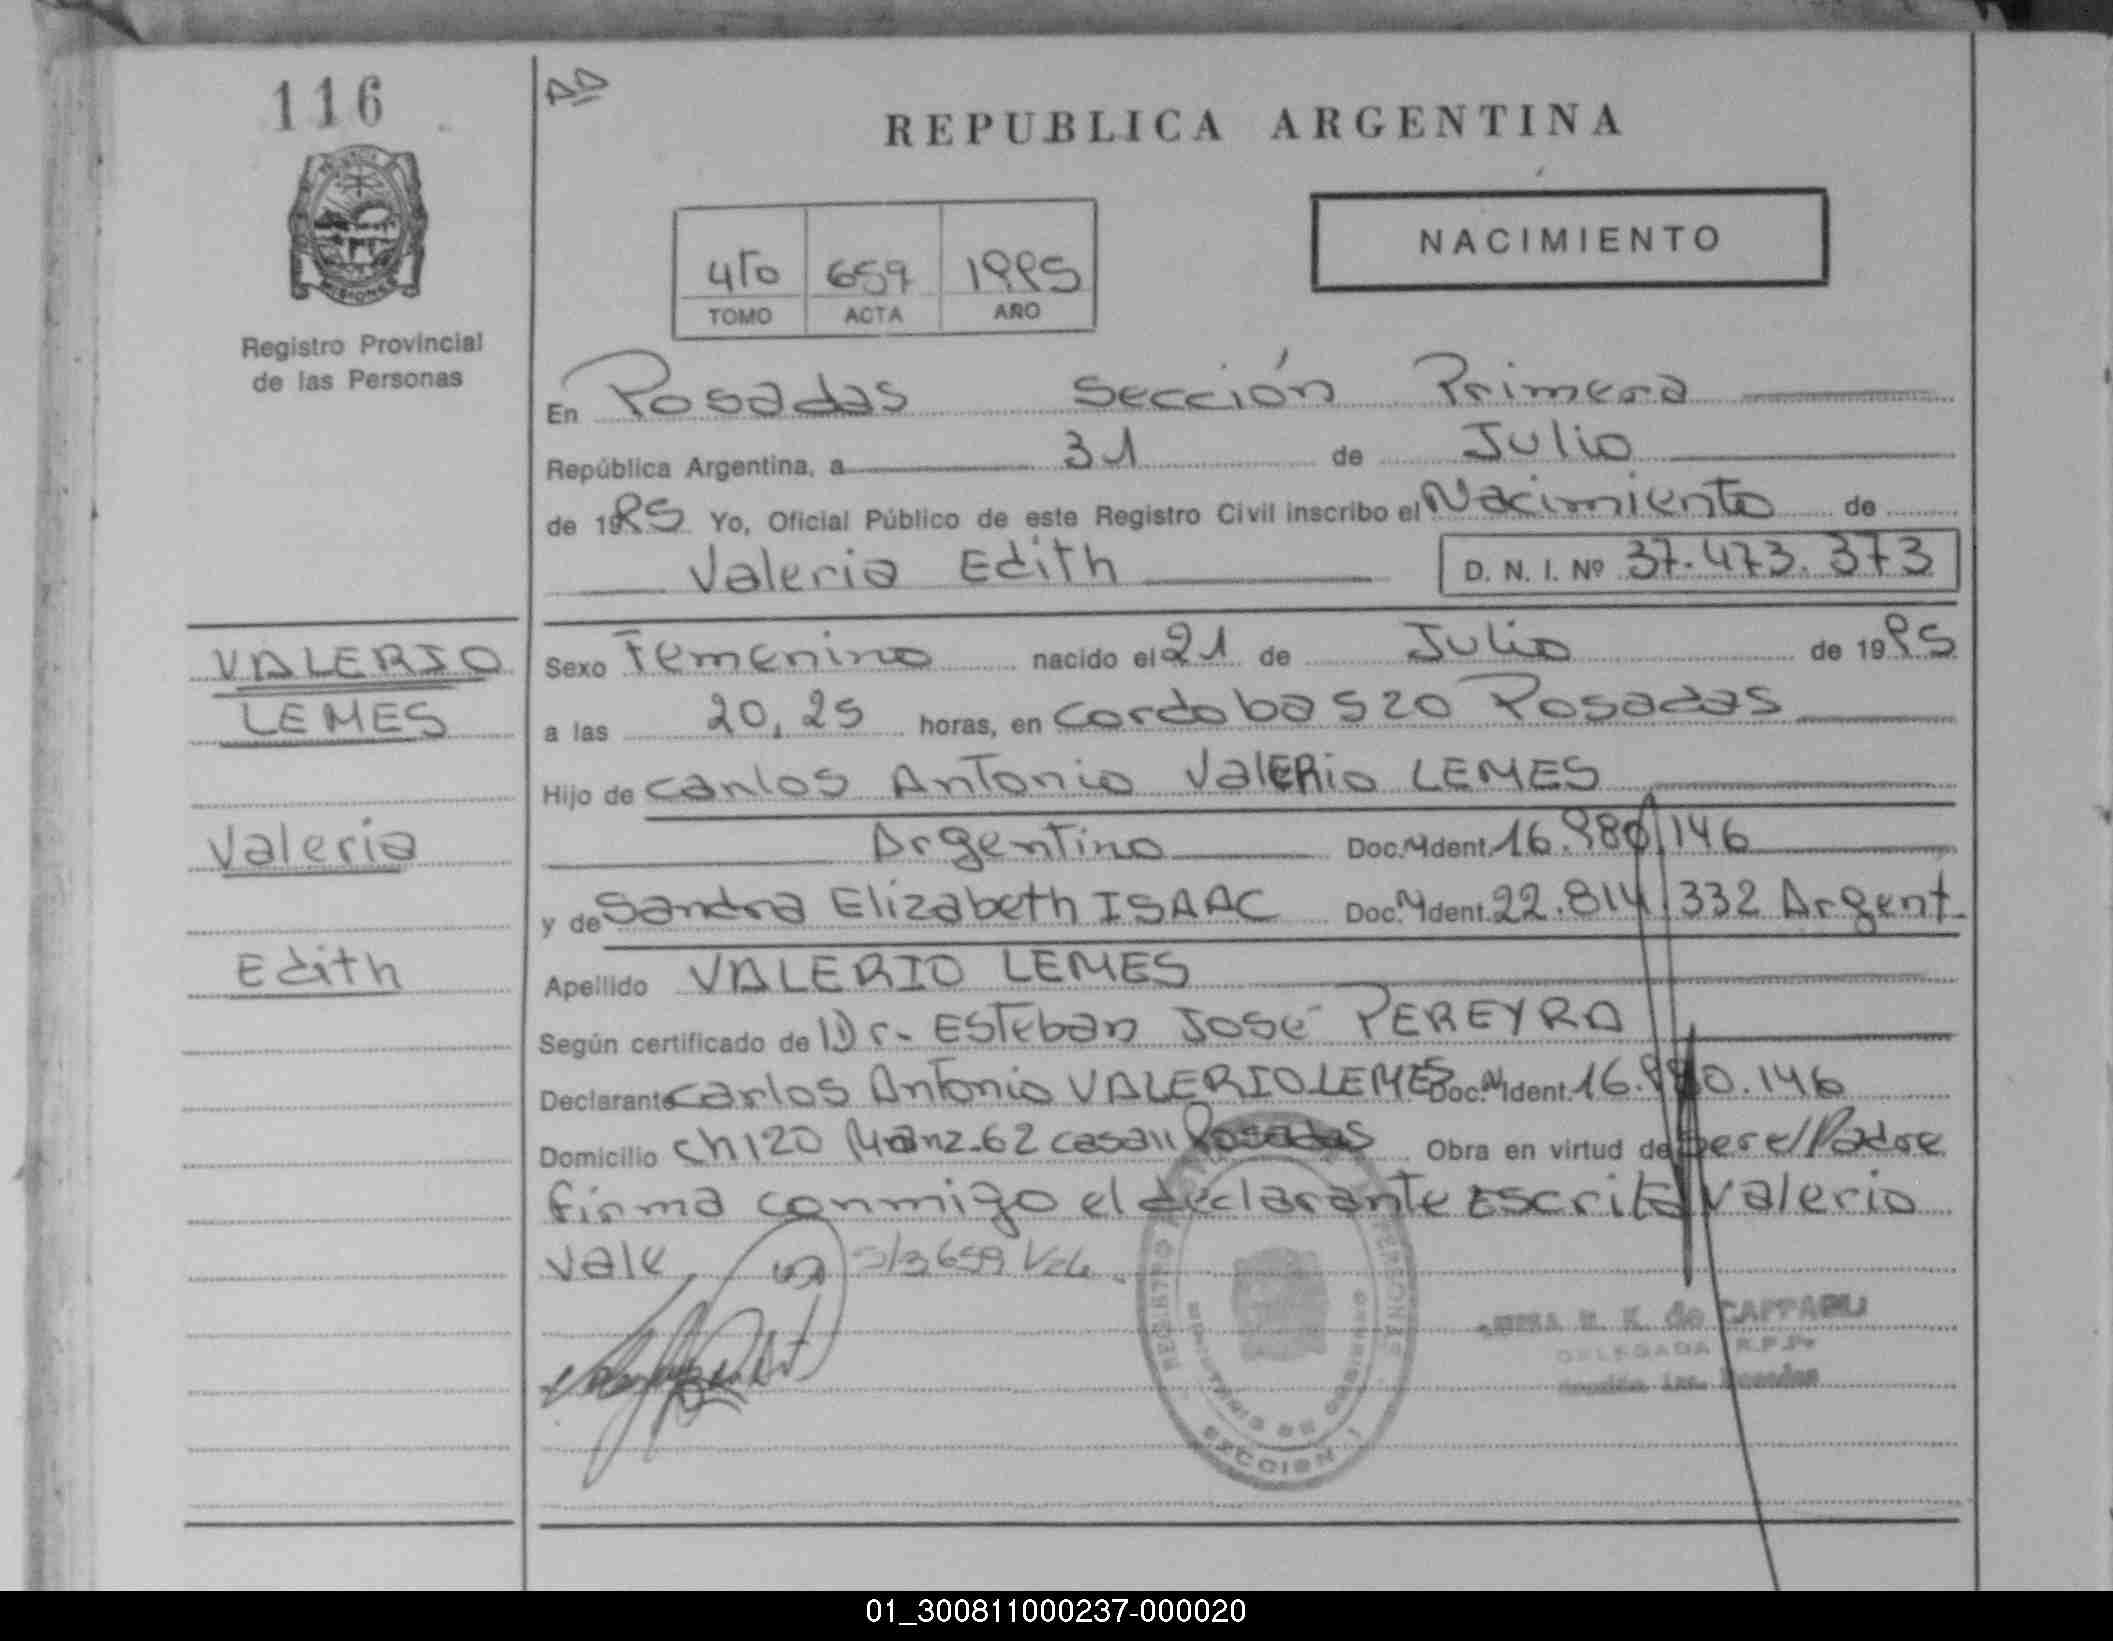 116
REPUBLICA ARGENTINA
NACIMIENTO
4to 659 1995
TOMO ACTA AÑO
MISIONES
Registro Provincial
de las Personas
En Posadas Sección Primera
República Argentina, a 31 de Julio
de 1995 Yo, Oficial Público de este Registro Civil inscribo el Nacimiento de
Valeria Edith D. N. I. Nº 37.473.373
VALERIO
LEMES
Valeria
Edith
Sexo Femenino nacido el 21 de Julio de 1995
a las 20,25 horas, en Cordoba 520 Posadas
Hijo de Carlos Antonio ValERio LEMES
Argentino Doc. M Ident. 16.980.146
y de Sandra Elizabeth ISAAC Doc. M Ident. 22.814.332 Argent.
Apellido VALERIO LEMES
Según certificado de Dr. Esteban José PEREYRA
Declarante Carlos Antonio VALERIO LEMES Doc. M Ident. 16.980.146
Domicilio Ch 120 Manz. 62 casa 11 Posadas Obra en virtud de Ser el Padre
firma conmigo el declarante Escrita Valerio
Vale S/3 659 Vale
REGISTRO PERSONAS
SECCION 1
de CAPPAGLI
DELEGADA R.P.P.
Sección 1ra. Posadas
01_300811000237-000020